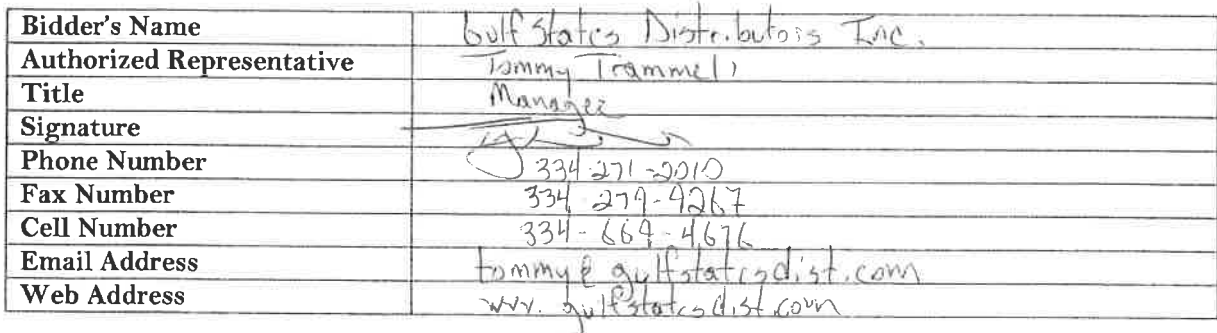 Bidder's Name Gulf States Distributors Inc.
Authorized Representative Tommy Trammell
Title Manager
Signature
Phone Number 334-271-2010
Fax Number 334-279-9267
Cell Number 334-669-4676
Email Address tommy@gulfstatesdist.com
Web Address www.gulfstatesdist.com